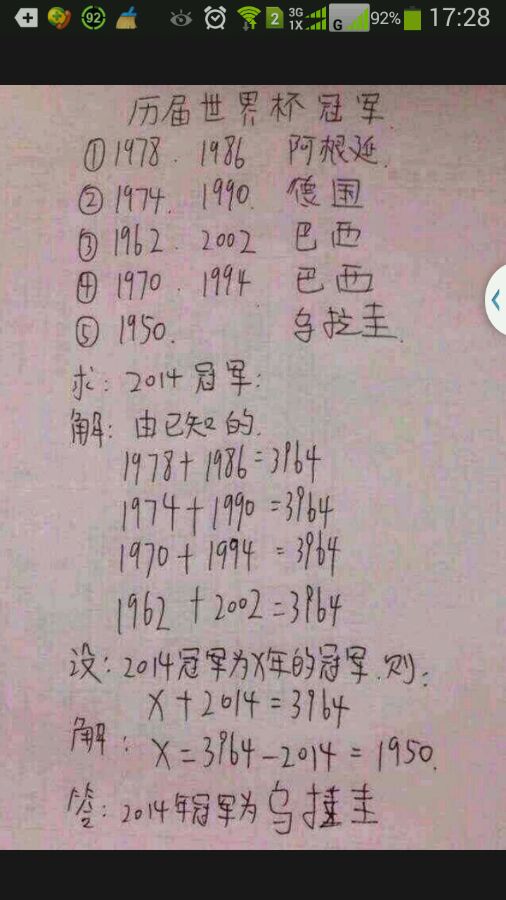 92 3G 1X 2 G 92% 17:28
历届世界杯冠军
①1978. 1986 阿根廷.
②1974. 1990. 德国
③1962. 2002 巴西
④1970. 1994. 巴西
⑤1950. 乌拉圭.
求:2014冠军:
解:由已知的.
1978+1986=3964
1974+1990=3964
1970+1994=3964
1962+2002=3964
设:2014冠军为X年的冠军.则:
X+2014=3964
解:X=3964-2014=1950.
答:2014年冠军为乌拉圭